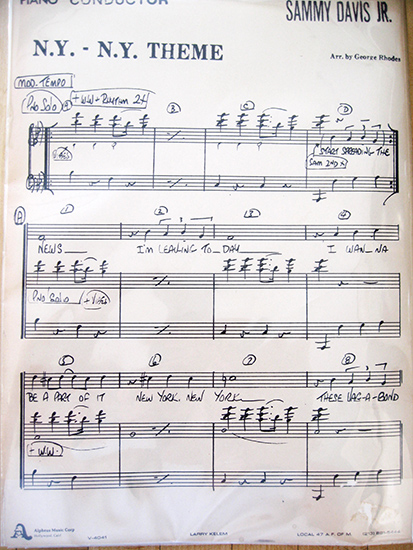 PIANO CONDUCTOR
SAMMY DAVIS JR.
N.Y. - N.Y. THEME
Arr. by George Rhodes
MOD. TEMPO
PNO SOLO
+ WW + RHYTHM 2X
A B C D
+ VIBES
"START SPREADING THE
SAM 2ND X
A
1 2 3 4
NEWS___ I'M LEAVING TO_DAY I WAN_NA
PNO SOLO + VIBES
5 6 7 8
BE A PART OF IT NEW YORK. NEW YORK___ THESE VAG-A-BOND
+ WW.
Alpheus Music Corp
V-4041
LARRY KELEM
LOCAL 47 A.F. OF M.